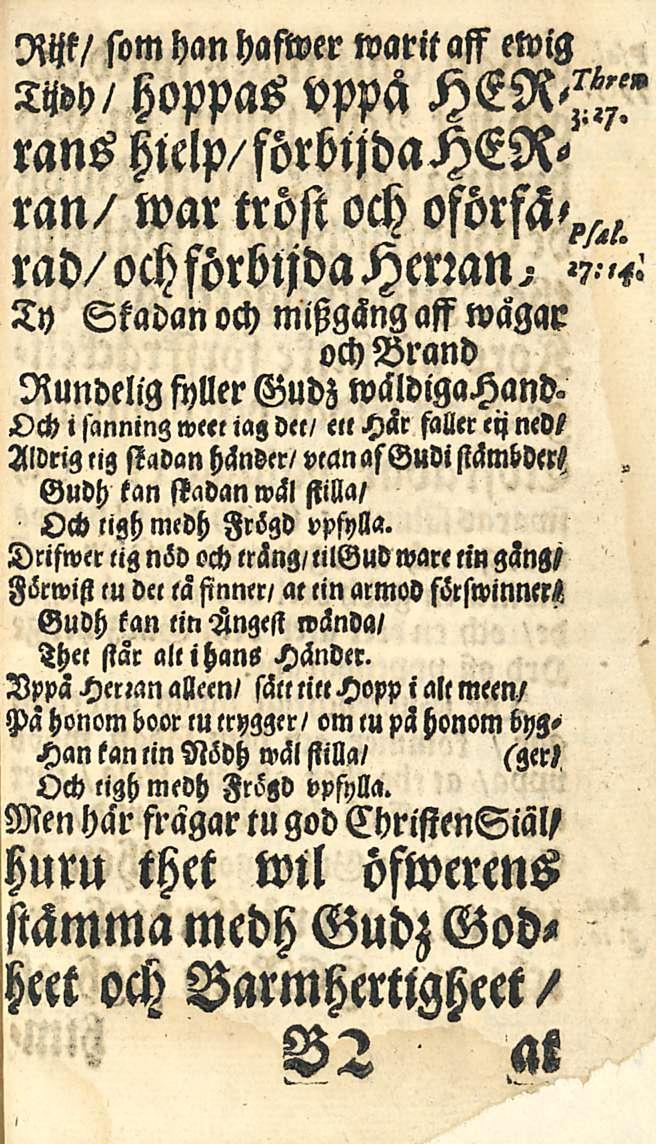 Rijk/ som han hafwer warit aff ewig
Tijdh/ hoppas vppå HER-
Thren
3:27.
rans hielp/ förbijda HER-
ran/ war tröst och oförfä-
Psal.
27:14.
rad/ och förbijda Herran;
Ty Skadan och mißgång aff wågar
och Brand
Rundelig fyller Gudz wäldiga Hand.
Och i sanning weet iag det/ ett Hår faller eij ned/
Aldrig tig skadan händer/ vtan af Gudi stämbder/
Gudh kan skadan wäl stilla/
Och tigh medh Frögd vpfylla.
Drifwer tig nöd och träng/ til Gud ware tin gång/
Förwist tu det tå finner/ at tin armod förswinner/
Gudh kan tin Ångest wända/
Thet står alt i hans Händer.
Vppå Herran alleen/ sätt titt Hopp i alt meen/
På honom boor tu trygger/ om tu på honom byg-
Han kan tin Nödh wäl stilla/ (ger/
Och tigh medh Frögd vpfylla.
Men här frågar tu god Christen Siäl/
huru thet wil öfwerens
stämma medh Gudz God-
heet och Barmhertigheet /
B2 at